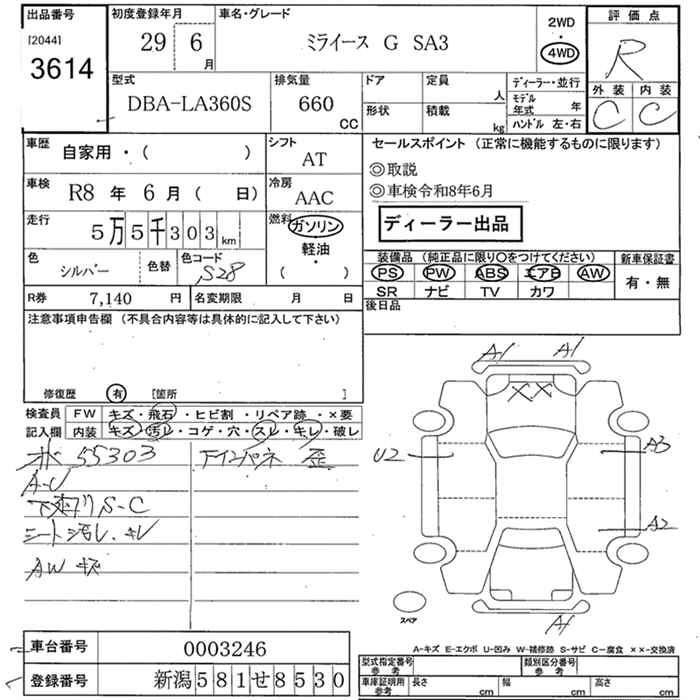 出品番号
[2044]
3614
初度登録年月
29 6
月
車名・グレード
ミライース G SA3
2WD
・
4WD
評価点
R
外装 内装
C C
型式
DBA-LA360S
排気量
660
CC
ドア
形状
定員
人
積載
kg
ディーラー・並行
モデル
年式 年
ハンドル 左・右
車歴
自家用・( )
シフト
AT
車検
R8 年 6 月 ( 日)
冷房
AAC
走行
5万5千303 km
燃料
ガソリン
軽油
( ・ )
色
シルバー
色替
色コード
S28
R券 7,140 円
名変期限 月 日
セールスポイント (正常に機能するものに限ります)
◎取説
◎車検令和8年6月
ディーラー出品
装備品 (純正品に限り○をつけてください)
PS PW ABS エアB AW
SR ナビ TV カワ
新車保証書
有・無
後日品
注意事項申告欄 (不具合内容等は具体的に記入して下さい)
修復歴 有 [箇所 ]
検査員
記入欄
FW キズ・飛石・ヒビ割・リペア跡・×要
内装 キズ・汚レ・コゲ・穴・スレ・キレ・破レ
55303
A-U
下廻り S-C
シート汚レ、キレ
AW キズ
歪
A1 A1
××
U2
A3
A2
A1
スペア
A-キズ E-エクボ U-凹み W-補修跡 S-サビ C-腐食 ××-交換済
車台番号 0003246
登録番号 新潟581せ8530
型式指定番号
参考
類別区分番号
参考
車庫証明用
参考
長さ cm
幅 cm
高さ cm